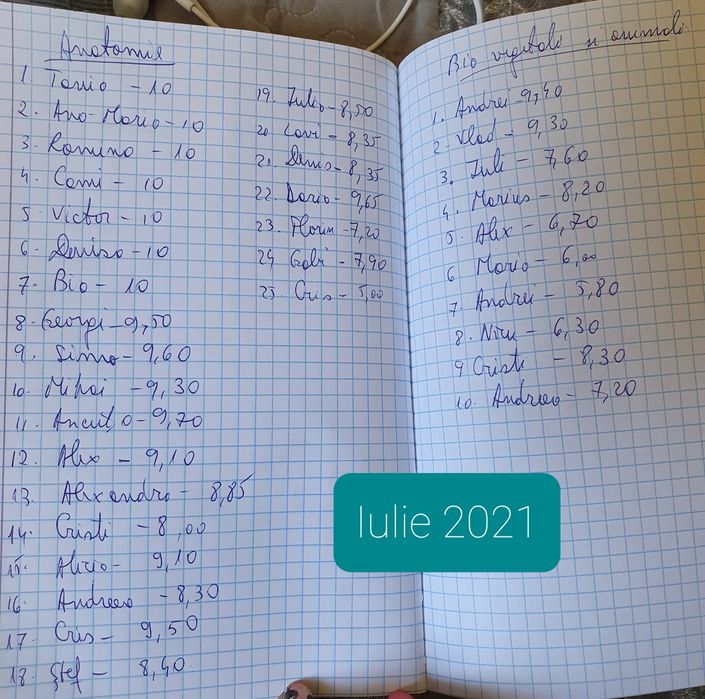 Anatomie
1. Tania - 10
2. Ana-Maria - 10
3. Romina - 10
4. Cami - 10
5. Victor - 10
6. Denisa - 10
7. Bia - 10
8. Georgi - 9,50
9. Simna - 9,60
10. Mihai - 9,30
11. Ancuța - 9,70
12. Alex - 9,10
13. Alexandra - 8,85
14. Cristi - 8,00
15. Alicia - 9,10
16. Andreea - 8,30
17. Cris - 9,50
18. Ștef - 8,40
19. Iulia - 8,50
20. - 8,35
21. Denis - 8,35
22. Daria - 9,65
23. Florin - 7,20
24. Gabi - 7,90
25. Cris - 5,00
Bio vegetală și animală
1. Andrei - 9,40
2. Vlad - 9,30
3. Iuli - 7,60
4. Marius - 8,20
5. Alex - 6,70
6. Mario - 6,00
7. Andrei - 5,80
8. Nicu - 6,30
9. Cristi - 8,30
10. Andreea - 7,20
Iulie 2021